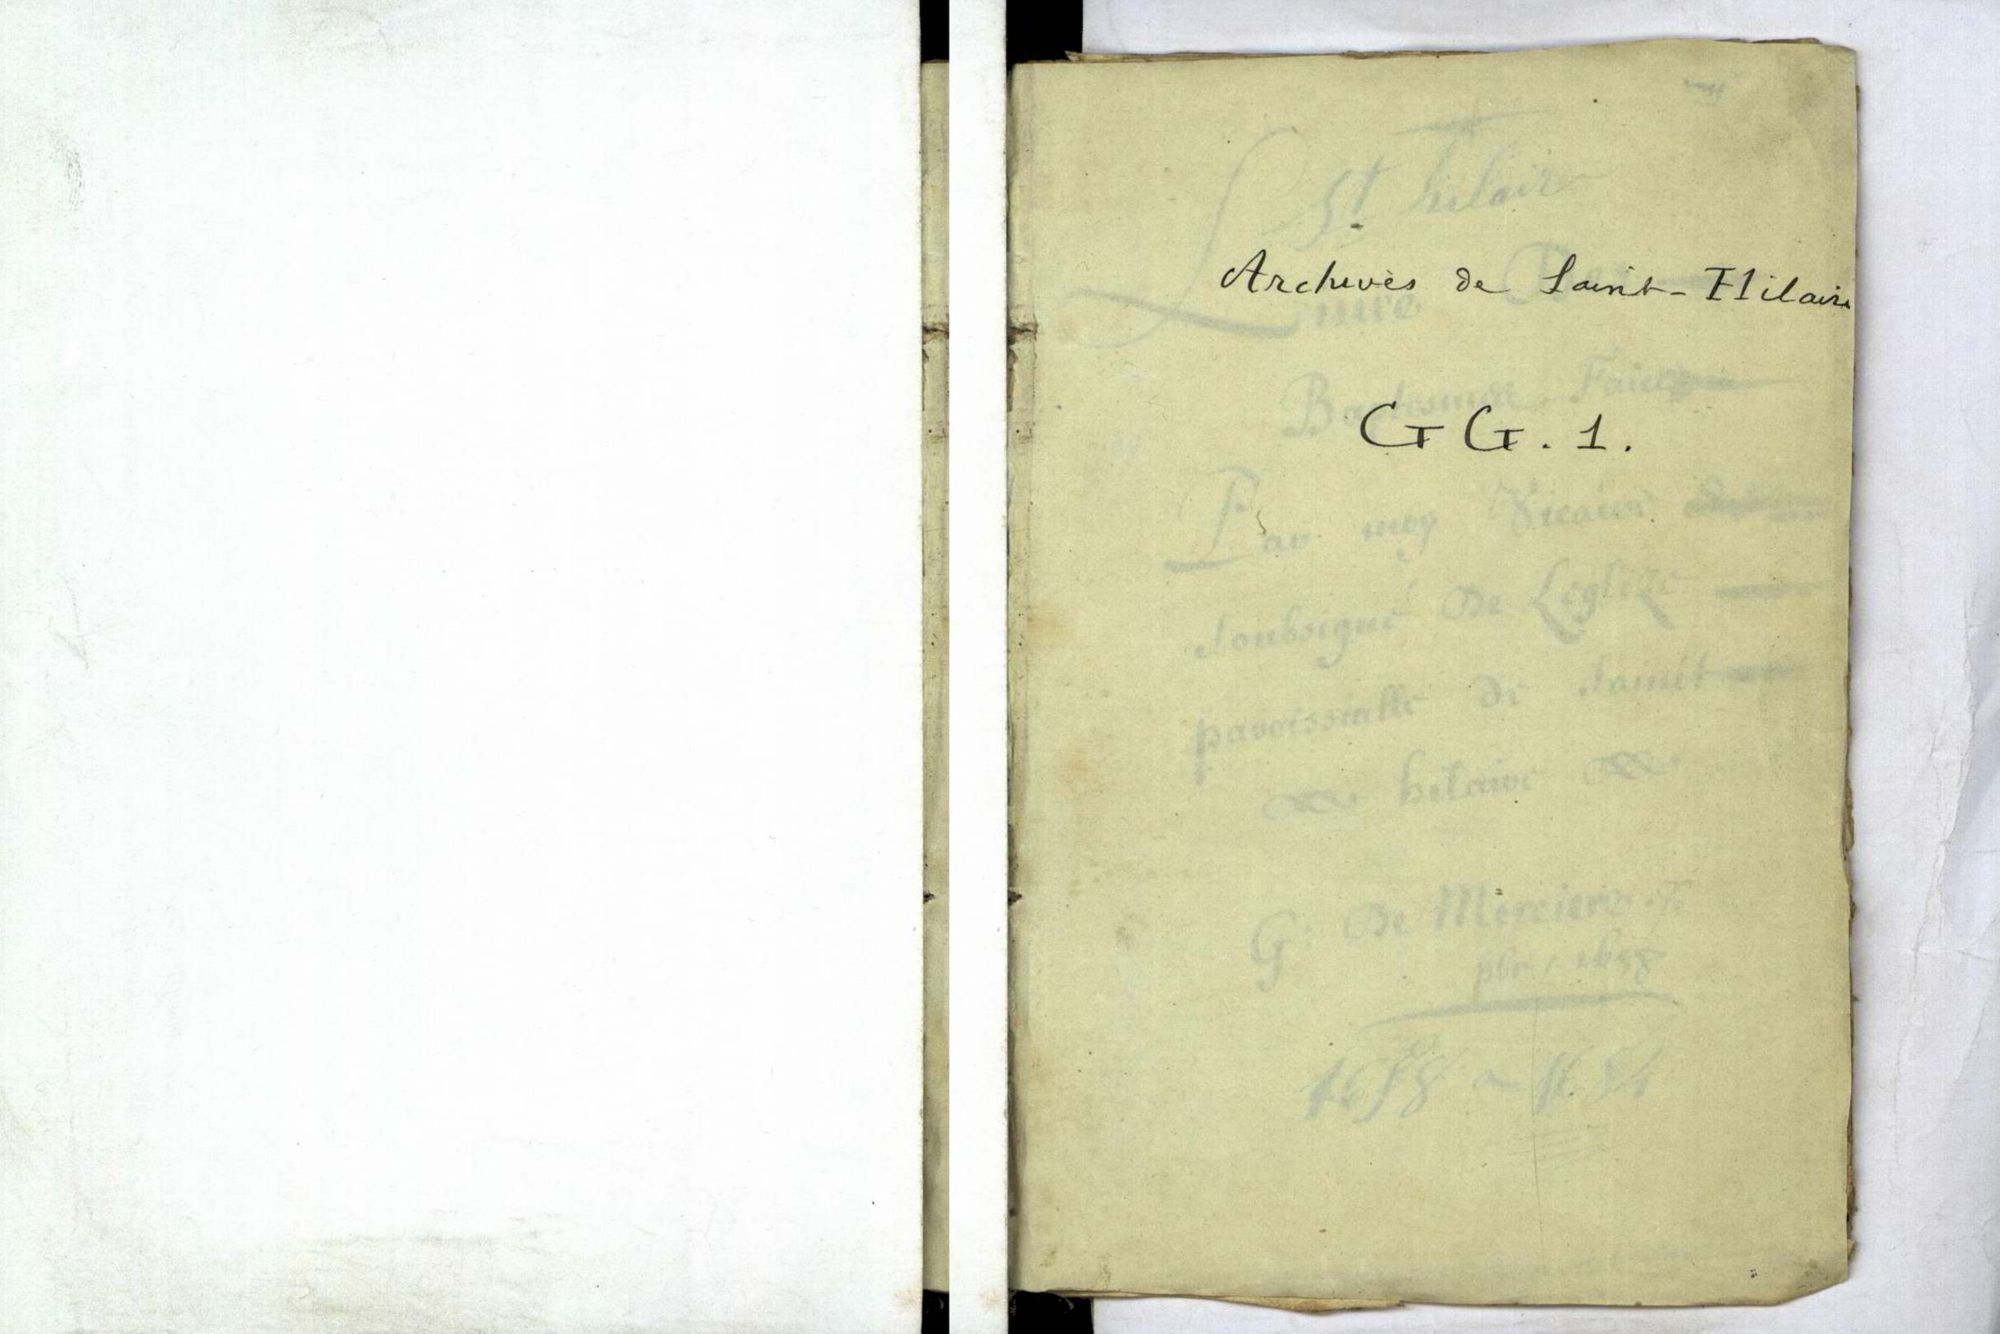 St hilaire
Archives de Saint-Hilaire
Livre Des
Baptesmes Faicts
GG. 1.
Par moy Vicaire
soubsigné De Leglize
paroissialle de Sainct
hilaire
G. De Merciere
pbr. 1658
1658 a